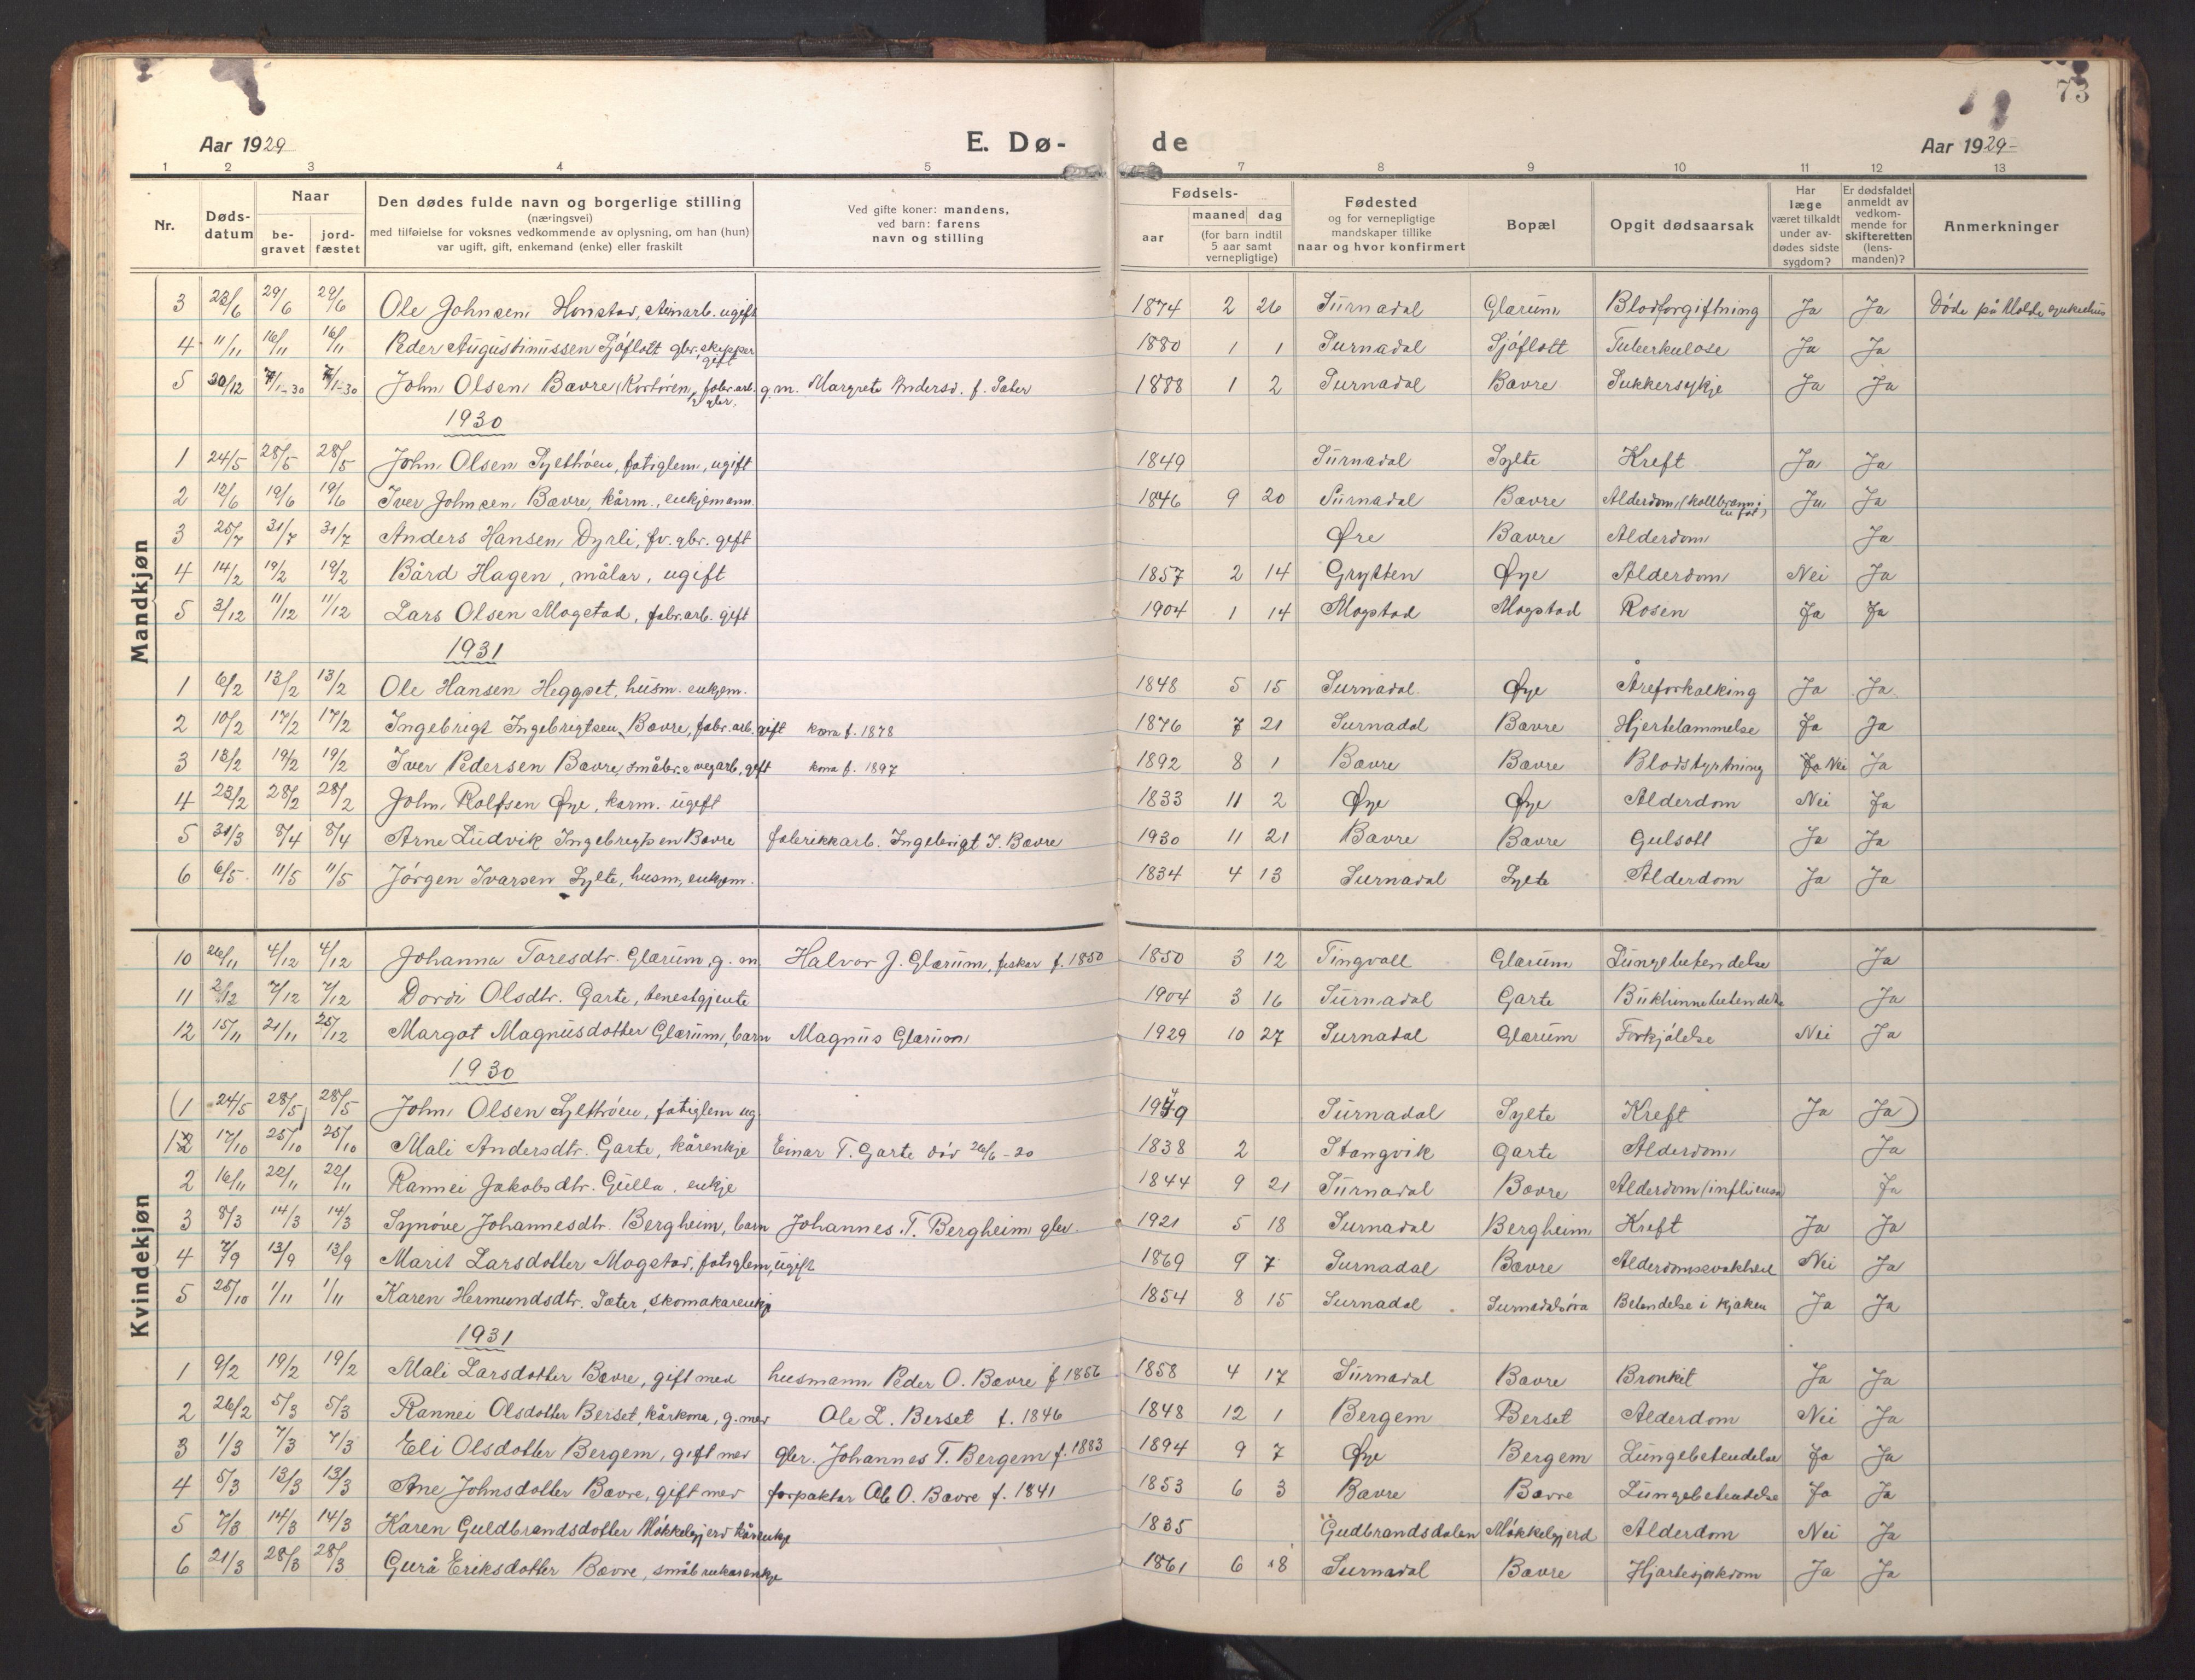 73
Aar 1929 E. Dø- de Aar 1929
1 2 3 4 5 6 7 8 9 10 11 12 13
Nr. Døds-datum Naar be-gravet jord-fæstet Den dødes fulde navn og borgerlige stilling (næringsvei) med tilføielse for voksnes vedkommende av oplysning, om han (hun) var ugift, gift, enkemand (enke) eller fraskilt Ved gifte koner: mandens, ved barn: farens navn og stilling Fødsels- aar maaned dag (for barn indtil 5 aar samt vernepligtige) Fødested og for vernepligtige mandskaper tillike naar og hvor konfirmert Bopæl Opgit dødsaarsak Har læge været tilkaldt under av-dødes sidste sygdom? Er dødsfaldet anmeldt av vedkom-mende for skifteretten (lens-manden)? Anmerkninger
Mandkjøn
3 23/6 29/6 29/6 Ole Johnsen Honstad, steinarb. ugift 1874 2 26 Surnadal Glærum Blodforgiftning Ja Ja Døde på Molde sjukehus
4 11/11 16/11 16/11 Peder Augustinussen Sjøflott gbr. skipper gift 1880 1 1 Surnadal Sjøflott Tuberkulose Ja Ja
5 30/12 7/1-30 7/1-30 John Olsen Bævre fabr.arb. gbr. g.m. Margrete Andersd. f. Sæter 1888 1 2 Surnadal Bævre Sukkersykje Ja Ja
1930
1 24/5 28/5 28/5 John Olsen Sylthøen, fatiglem, ugift 1849 Surnadal Sylte Kreft Ja Ja
2 12/6 19/6 19/6 Iver Johnsen Bævre, kårm., enkjemann. 1846 9 20 Surnadal Bævre Alderdom (kollbrann i en fot) Ja Ja
3 25/7 31/7 31/7 Anders Hansen Dyrli, fv. gbr. gift Øre Bævre Alderdom Ja
4 14/2 19/2 19/2 Bård Hagen, målar, ugift 1857 2 14 Grytten Øye Alderdom Nei Ja
5 3/12 11/12 11/12 Lars Olsen Mogstad, fabr.arb. gift 1904 1 14 Mogstad Mogstad Rosen Ja Ja
1931
1 6/2 13/2 13/2 Ole Hansen Heggset, husm. enkjem. 1848 5 15 Surnadal Øye Åreforkalking Ja Ja
2 10/2 17/2 17/2 Ingebrigt Ingebrigtsen Bævre, fabr.arb. gift kona f. 1878 1876 7 21 Surnadal Bævre Hjertelammelse Ja Ja
3 13/2 19/2 19/2 Iver Pedersen Bævre, småbr. e vegarb, gift kona f. 1897 1892 8 1 Bævre Bævre Blodstyrtning Ja Nei Ja
4 23/2 28/2 28/2 John Rolfsen Øye, kårm. ugift 1833 11 2 Øye Øye Alderdom Nei Ja
5 31/3 8/4 8/4 Arne Ludvik Ingebrigtsen Bævre fabrikkarb. Ingebrigt I. Bævre 1930 11 21 Bævre Bævre Gulsott Ja Ja
6 6/5 11/5 11/5 Jørgen Ivarsen Sylte, husm, enkjem. 1834 4 13 Surnadal Sylte Alderdom Ja Ja
Kvindekjøn
10 26/11 4/12 4/12 Johanna Toresdtr. Glærum, g. m Halvor J. Glærum, fiskar f. 1850 1850 3 12 Tingvoll Glærum Lungebetendelse Ja
11 2/12 7/12 7/12 Dordi Olsdtr. Garte, tenestgjente 1904 3 16 Surnadal Garte Bukhinnebetendelse Ja
12 15/11 21/11 25/12 Margot Magnusdotter Glærum, barn Magnus Glærum 1929 10 27 Surnadal Glærum Forkjølelse Nei Ja
1930
(1 24/5 28/5 28/5 John Olsen Sylthøen, fatiglem ug. 1849 Surnadal Sylte Kreft Ja Ja)
1 17/10 25/10 25/10 Mali Andersdtr. Garte, kårenkje Einar T. Garte død 26/6-20 1838 2 Stangvik Garte Alderdom Ja
2 16/11 22/11 22/11 Rannei Jakobsdtr. Gulla, enkje 1844 9 21 Surnadal Bævre Alderdom (influensa) Ja
3 8/3 14/3 14/3 Synøve Johannesdtr. Bergheim, barn Johannes T. Bergheim gbr. 1921 5 18 Surnadal Bergheim Kreft Ja Ja
4 7/9 13/9 13/9 Marit Larsdotter Mogstad, fatiglem, ugift 1869 9 7 Surnadal Bævre Alderdomssvakheit Nei Ja
5 25/10 1/11 1/11 Karen Hermundsdtr. Sæter, skomakarenkje 1854 8 15 Surnadal Surnadalsøra Betendelse i kjaken Ja Ja
1931
1 9/2 19/2 19/2 Mali Larsdotter Bævre, gift med husmann Peder O. Bævre f. 1856 1858 4 17 Surnadal Bævre Bronkit Ja Ja
2 26/2 5/3 5/3 Rannei Olsdotter Berset, kårkona, g. med Ole L. Berset f. 1846 1848 12 1 Bergem Berset Alderdom Nei Ja
3 1/3 7/3 7/3 Eli Olsdotter Bergem, gift med gbr. Johannes T. Bergem f. 1883 1894 9 7 Øye Bergem Lungebetendelse Ja Ja
4 5/3 13/3 13/3 Ane Johnsdotter Bævre, gift med forpaktar Ole O. Bævre f. 1841 1853 6 3 Bævre Bævre Lungebetendelse Ja Ja
5 7/3 14/3 14/3 Karen Guldbrandsdotter Møkkelgjerd kårenkje 1835 Gudbrandsdalen Møkkelgjerd Alderdom Nei Ja
6 21/3 28/3 28/3 Gurå Eriksdotter Bævre, småbrukarenkje 1861 6 18 Surnadal Bævre Hjartesjukdom Ja Ja